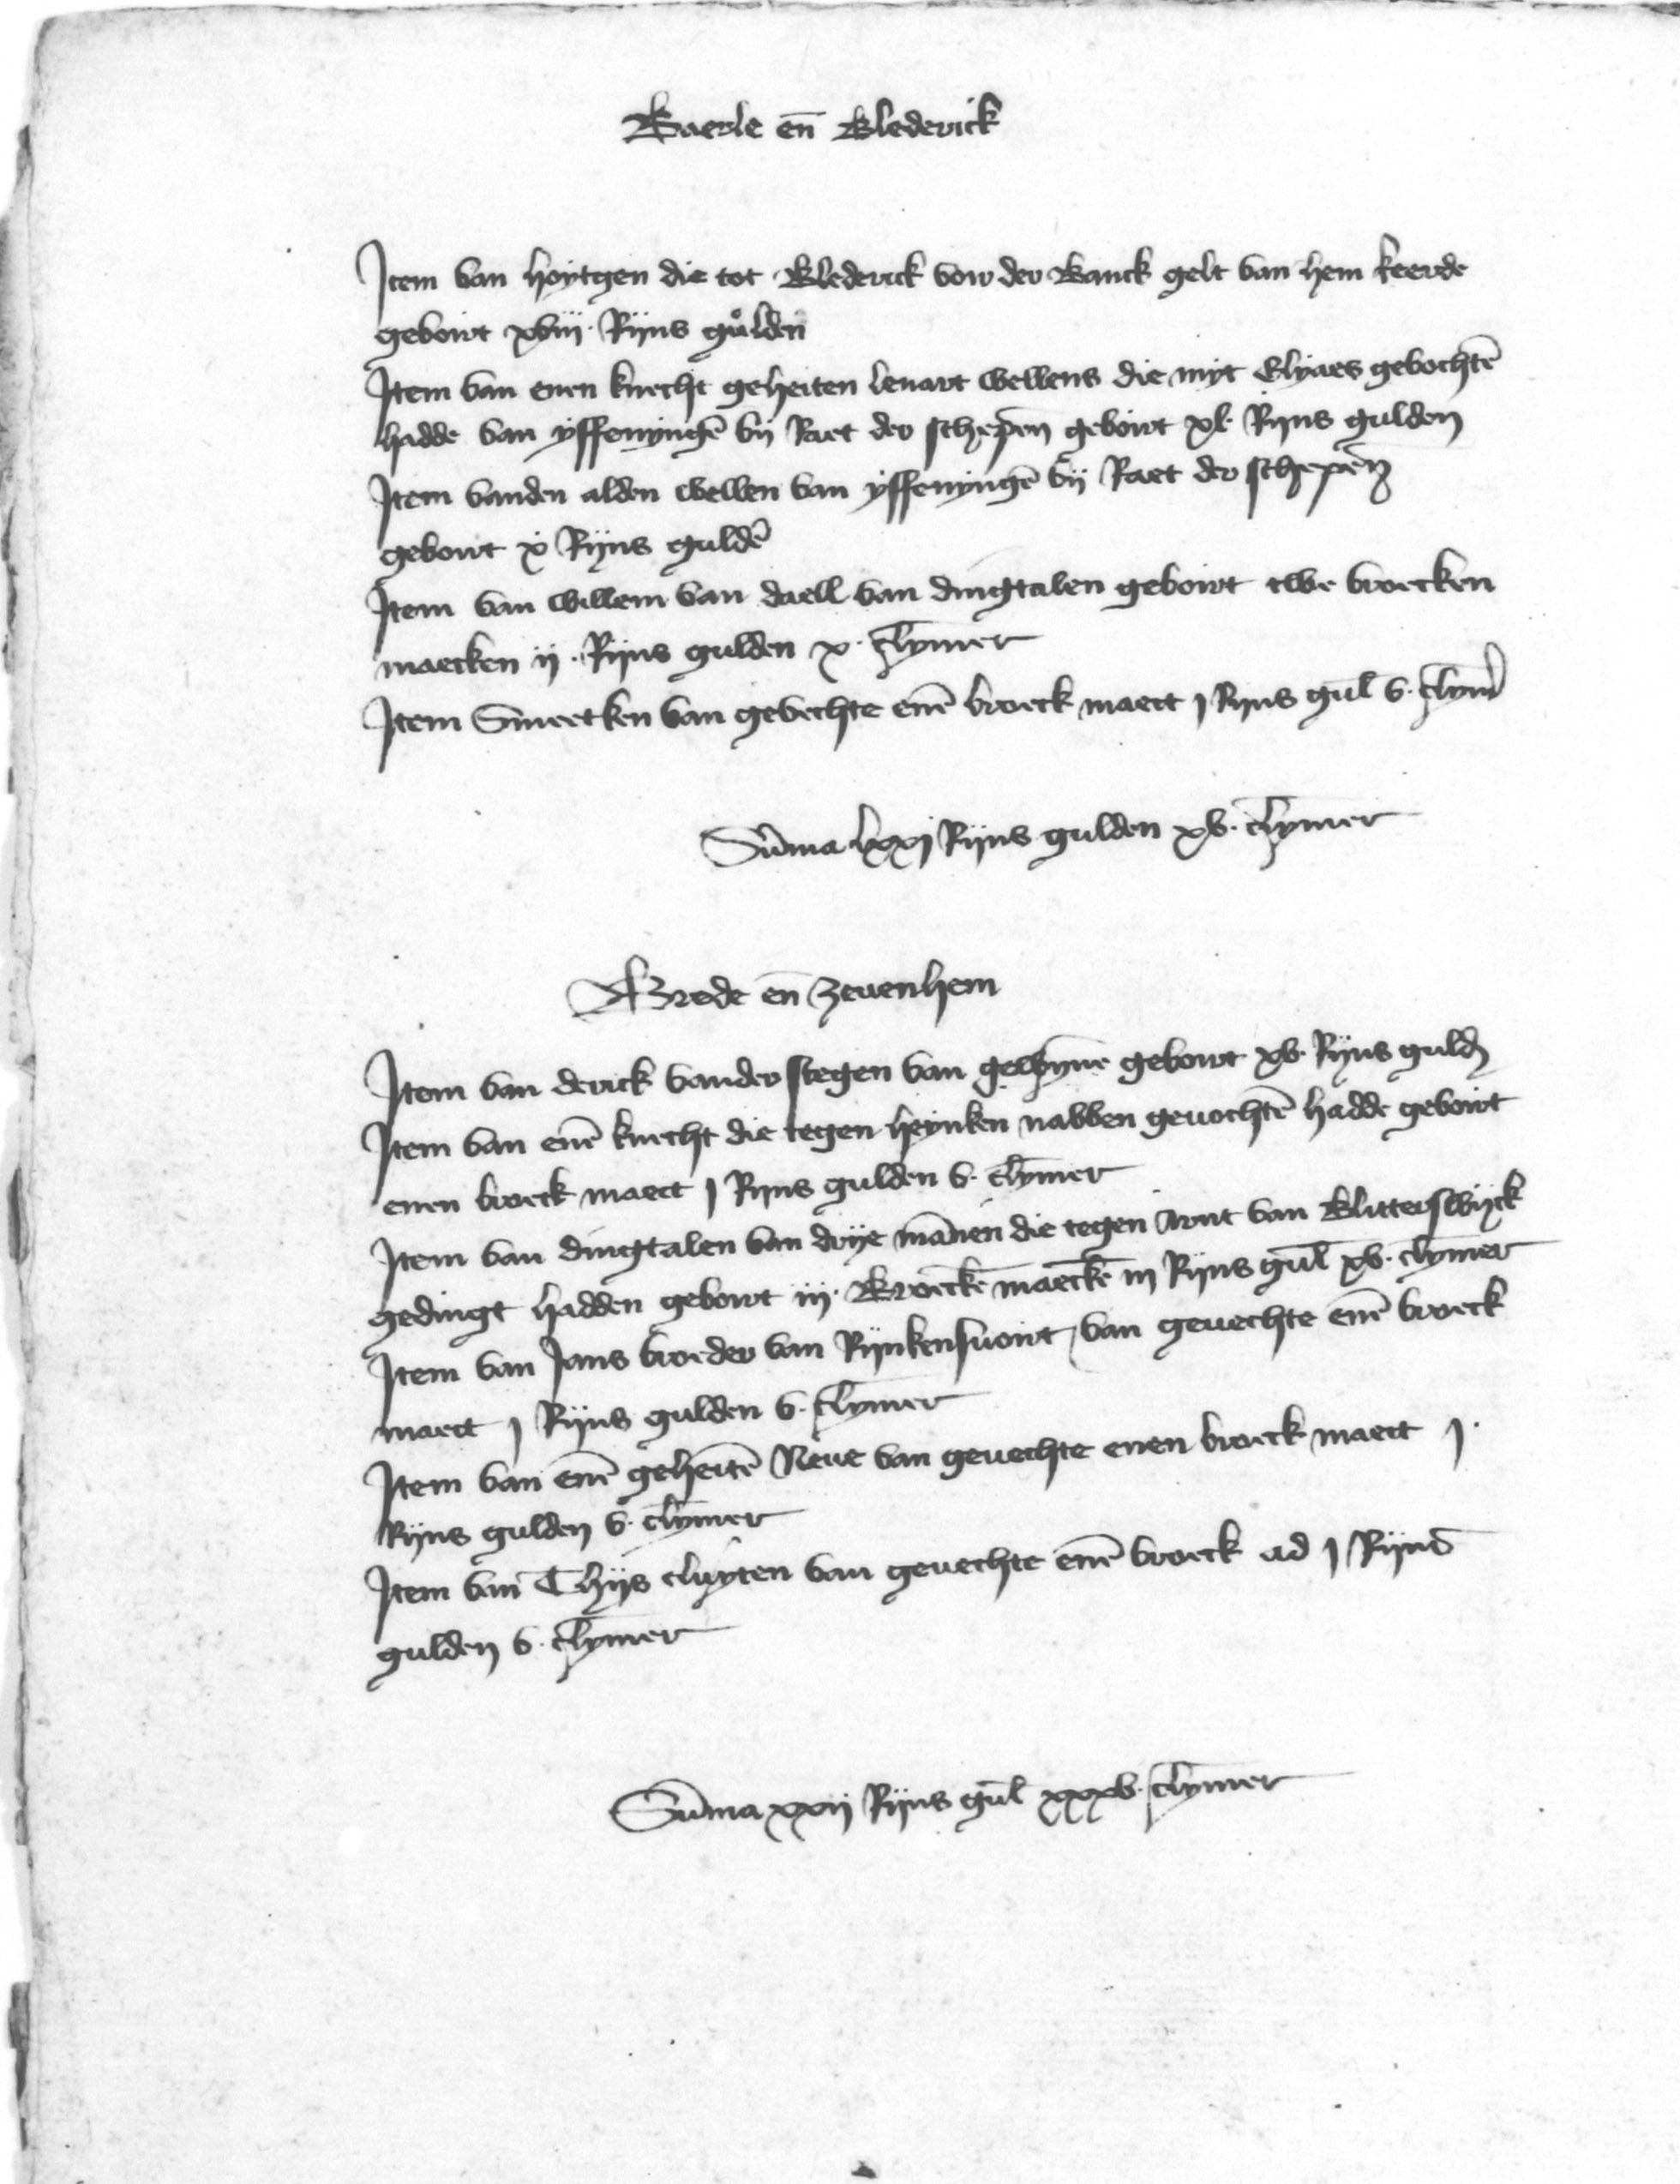 Baerle en̄ Blederick
Item van hoytgen die tot Blederick vor der Banck gelt van hem keerde
geboirt xviij Rijns gulden
Item van enen knecht geheiten lenart wellens die myt Elyaes gevochtē
hadde van yffenyngē bij Raet der schepen geboirt xl Rijns gulden
Item vanden alden wellen van yffenyngē bij Raet der schepen
geboirt x Rijns guldē
Item van willem van daell van dingtalen geboirt twe broecken
maecken ij Rijns gulden x clymer
Item Smeetken van gevechte enē broeck maect j Rijns gul v clym̄
Sum̄a lxxj Rijns gulden xv clymer
Brede en̄ zevenhem
Item van derick vander stegen van gewyne geboirt xv Rijns guld
Item van enē knecht die tegen heynken nabben gevochtē hadde geboirt
enen broeck maect j Rijns gulden v clymer
Item van dingtalen van drije man̄en die tegen Arnt van Blitterswijck
gedingt hadden geboirt iij Broeckē maeckē iij Rijns gul xv clymer
Item van Jans broeder van Rijnkensvoirt van gevechte enē broeck
maect j Rijns gulden v clymer
Item van enē geheitē Neve van gevechte enen broeck maect j
Rijns gulden v clymer
Item van Thijs cluyten van gevechte enē broeck ad j Rijns
gulden v clymer
Sum̄a xxij Rijns gul xxxv clymer